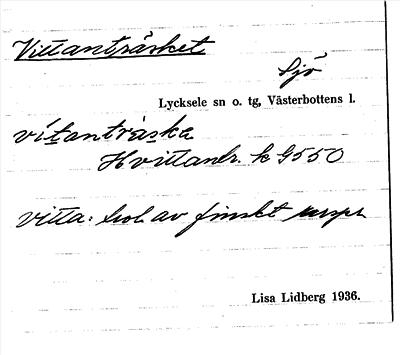 Vittanträsket
Sjö
Lycksele sn o. tg, Västerbottens l.
vítantràska
Hvittantr. k G550
vitta: trol av finskt urspr
Lisa Lidberg 1936.